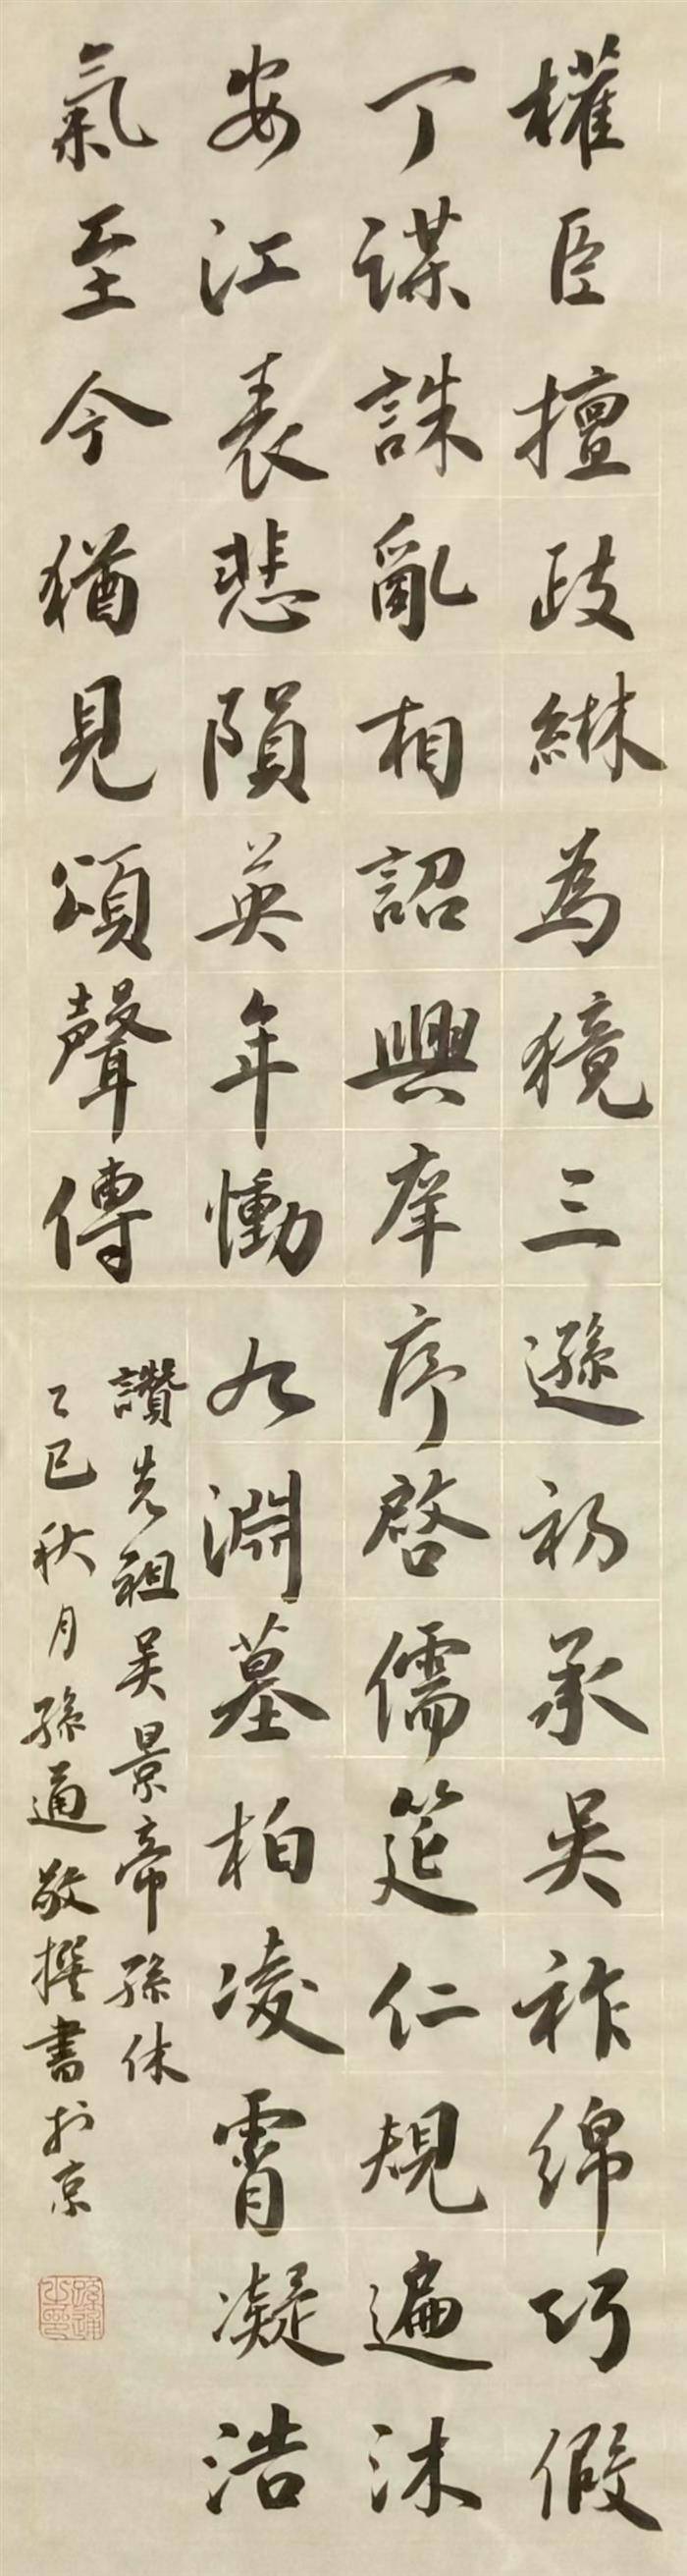 權臣擅政綝為獍三遜初承吳祚綿巧假
丁謀誅亂相詔興庠序啓儒筵仁規遍沐
安江表悲隕英年慟九淵墓柏凌霄凝浩
氣至今猶見頌聲傳
讚先祖吳景帝孫休
乙巳秋月孫通敬撰書於京